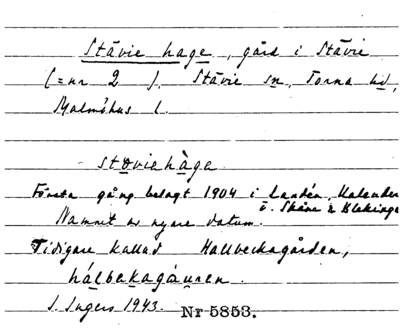 Stävie hage, gård i Stävie
(= nr 2). Stävie sn, Torna hd,
Malmöhus l.
støviehàge
Första gång belagt 1904 i Landén, Kalender
ö. Skåne & Blekinge
Namnet av nyare datum.
Tidigare kallad Hallbeckagården,
hálbekagáuren.
I. Ingers 1943. Nr 5853.